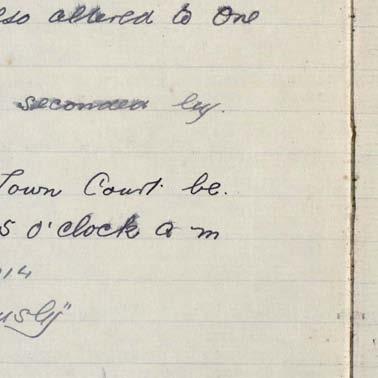 also altered to One
seconded by.
Town Court be.
5 o'clock a m
14
usly"